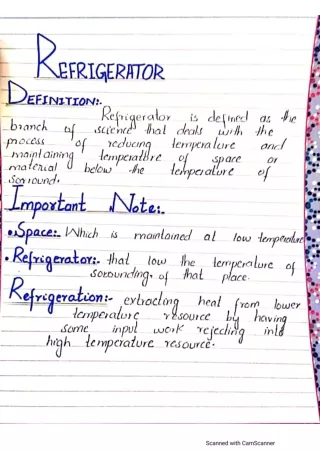 REFRIGERATOR
DEFINITION:.
Refrigerator is defined as the
branch of science that deals with the
process of reducing temperature and
maintaining temperature of space or
material below the temperature of
sorround.
Important Note:.
• Space:. Which is maintained at low temperature
• Refrigerator:. that low the temperature of
sorounding, of that place.
Refrigeration:- extracting heat from lower
temperature resource by having
some input work rejecting into
high temperature resource.
Scanned with CamScanner